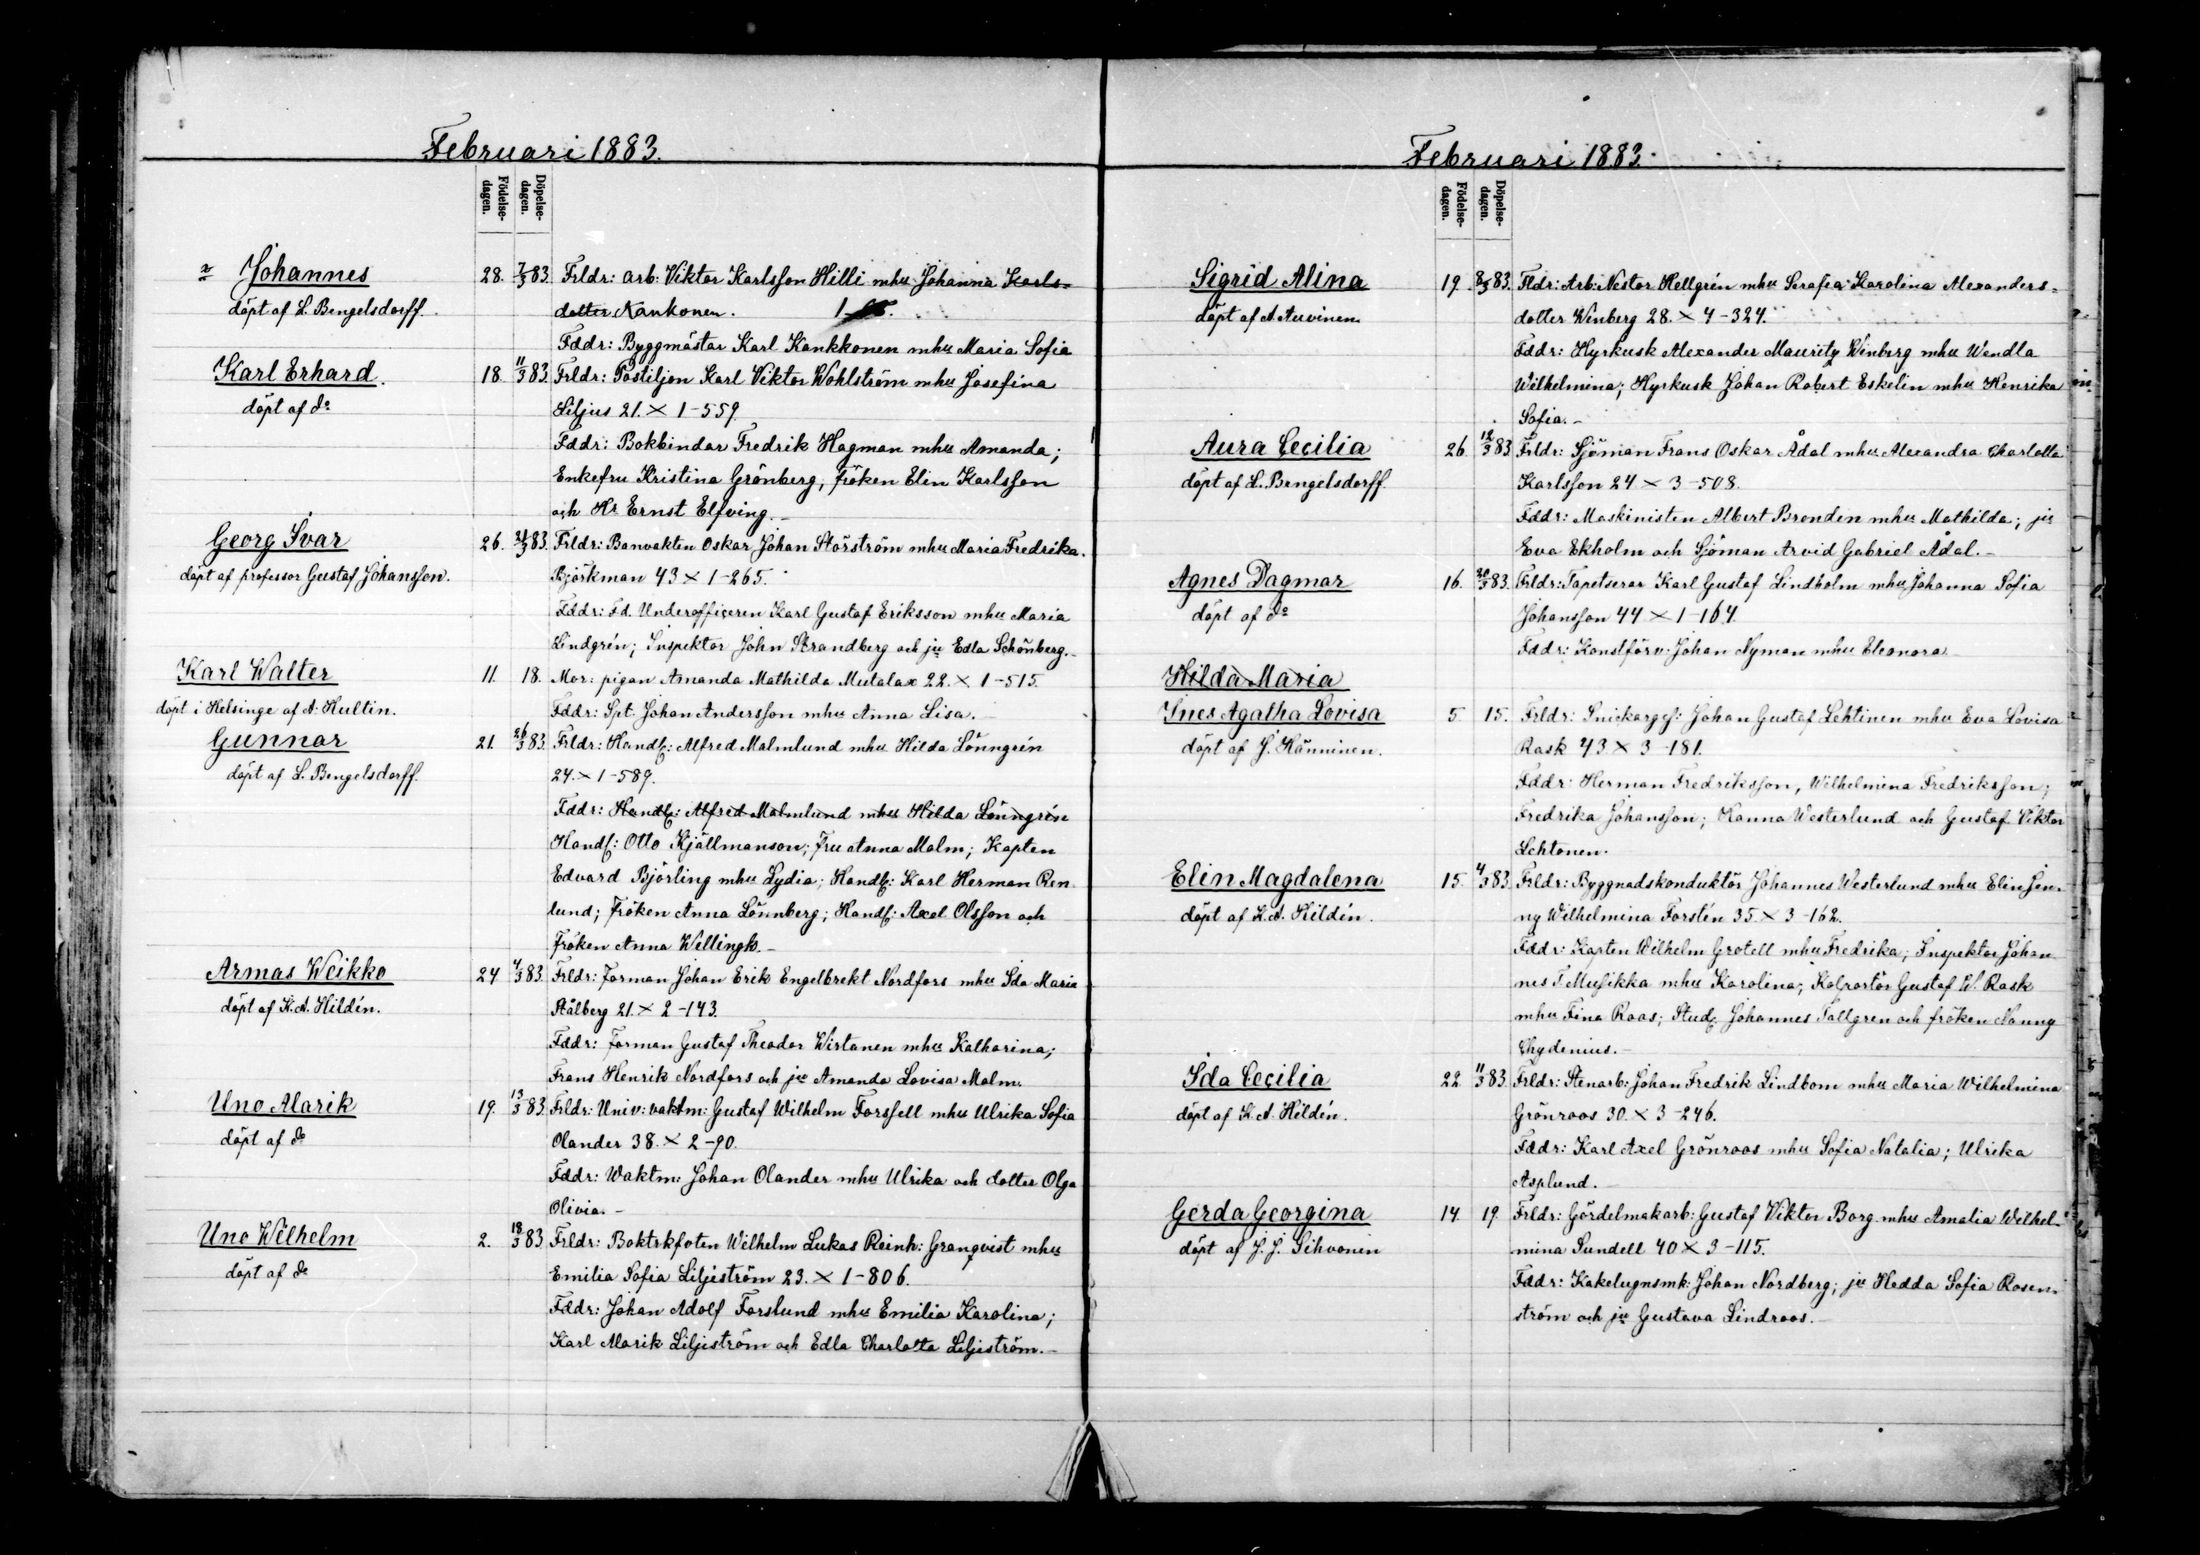 Februari 1883.
Födelse-dagen.
Döpelse-dagen.
Johannes 28. 7/3 83. Frldr: Arb: Viktor Karlsson Hilli mhu Johanna Karls-
döpt af L. Bengelsdorff. dotter Nankonen.
Fddr: Byggmästar Karl Kankkonen mhu Maria Sofia
Karl Erhard. 18. 11/3 83. Frldr: Postiljon Karl Viktor Wohlström mhu Josefina
döpt af do Liljus 21. × 1-559.
Fddr: Bokbindar Fredrik Hagman mhu Amanda;
Enkefru Kristina Grönberg, fröken Elin Karlsson
och Hr Ernst Elfving.-
Georg Ivar 26. 21/3 83. Frldr: Banvakten Oskar Johan Storström mhu Maria Fredrika
döpt af professor Gustaf Johansson. Björkman 43 × 1-265.
Fddr: Fd. Underofficeren Karl Gustaf Eriksson mhu Maria
Lindgrén; Inspektor John Strandberg och ju Edla Schönberg.-
Karl Walter 11. 18. Mor: pigan Amanda Mathilda Mutalax 22. × 1-515.
döpt i Helsinge af A. Hultin. Fddr: Spt. Johan Andersson mhu Anna Lisa.-
Gunnar 21. 26/3 83. Frldr: Handl: Alfred Malmlund mhu Hilda Lönngrén
döpt af L. Bengelsdorff. 24. × 1-589.
Fddr: Handl: Alfred Malmlund mhu Hilda Lönngrén
Handl: Otto Kjällmanson; Fru Anna Malm; Kapten
Edvard Björling mhu Lydia; Handl: Karl Herman Ren-
lund; fröken Anna Lönnberg; Handl: Axel Olsson och
fröken Anna Wellingk.-
Armas Weikko 24 4/3 83. Frldr: Forman Johan Erik Engelbrekt Nordfors mhu Ida Maria
döpt af K. A. Hildén. Stålberg 21. × 2-143.
Fddr: Forman Gustaf Theodor Wirtanen mhu Katharina;
Frans Henrik Nordfors och ju Amanda Lovisa Malm.
Uno Alarik 19. 13/3 83. Frldr: Univ: vaktm: Gustaf Wilhelm Forssell mhu Ulrika Sofia
döpt af do Olander 38. × 2-90.
Fddr: Waktm: Johan Olander mhu Ulrika och dotter Olga
Olivia.-
Uno Wilhelm 2. 18/3 83. Frldr: Boktrkfoten Wilhelm Lukas Reinh: Granqvist mhu
döpt af do Emilia Sofia Liljeström 23. × 1-806.
Fddr: Johan Adolf Forslund mhu Emilia Karolina;
Karl Alarik Liljeström och Edla Charlotta Liljeström.-
Februari 1883.
Födelse-dagen.
Döpelse-dagen.
Sigrid Alina 19. 8/3 83. Fldr: Arb: Nestor Hellgrén mhu Serafia Karolina Alexanders-
döpt af A. Auvinen. dotter Winberg 28. × 4-324.
Fddr: Hyrkusk Alexander Mauritz Winberg mhu Wendla
Wilhelmina; Hyrkusk Johan Robert Eskelin mhu Henrika
Sofia.-
Aura Cecilia 26. 12/3 83. Frldr: Sjöman Frans Oskar Ådal mhu Alexandra Charlotta
döpt af L. Bengelsdorff. Karlsson 24 × 3-508.
Fddr: Maskinisten Albert Brondén mhu Mathilda; ju
Eva Ekholm och Sjöman Arvid Gabriel Ådal.-
Agnes Dagmar 16. 20/3 83. Frldr: Tapetserar Karl Gustaf Lindholm mhu Johanna Sofia
döpt af do Johansson 44 × 1-164.
Fddr: Konstförv: Johan Nyman mhu Eleonora
Hilda Maria
Ines Agatha Lovisa 5 15. Frldr: Snickargs: Johan Gustaf Lehtinen mhu Eva Lovisa
döpt af J. Hänninen. Rask 43 × 3-181.
Fddr: Herman Fredriksson, Wilhelmina Fredriksson;
Fredrika Johansson; Hanna Westerlund och Gustaf Viktor
Lehtonen.
Elin Magdalena 15. 4/3 83. Frldr: Byggnadskonduktör Johannes Westerlund mhu Elin Jen-
döpt af K. A. Hildén. ny Wilhelmina Forstén 35. × 3-162.
Fddr: Kapten Wilhelm Grotell mhu Fredrika; Inspektor Johan-
nes T. Musikka mhu Karolina; Kolportör Gustaf W. Rask
mhu Fina Roos; Stud. Johannes Tallgren och fröken Nanny
Chydenius.-
Ida Cecilia 22. 11/3 83. Frldr: Stenarb: Johan Fredrik Lindbom mhu Maria Wilhelmina
döpt af K. A. Hildén. Grönroos 30. × 3-246.
Fddr: Karl Axel Grönroos mhu Sofia Natalia; Ulrika
Asplund.-
Gerda Georgina 14. 19. Frldr: Gördelmakarb: Gustaf Viktor Borg mhu Amalia Wilhel-
döpt af J. J. Sihvonen mina Sundell 40 × 3-115.
Fddr: Kakelugnsmk: Johan Nordberg; ju Hedda Sofia Rosen-
ström och ju Gustava Lindroos.-